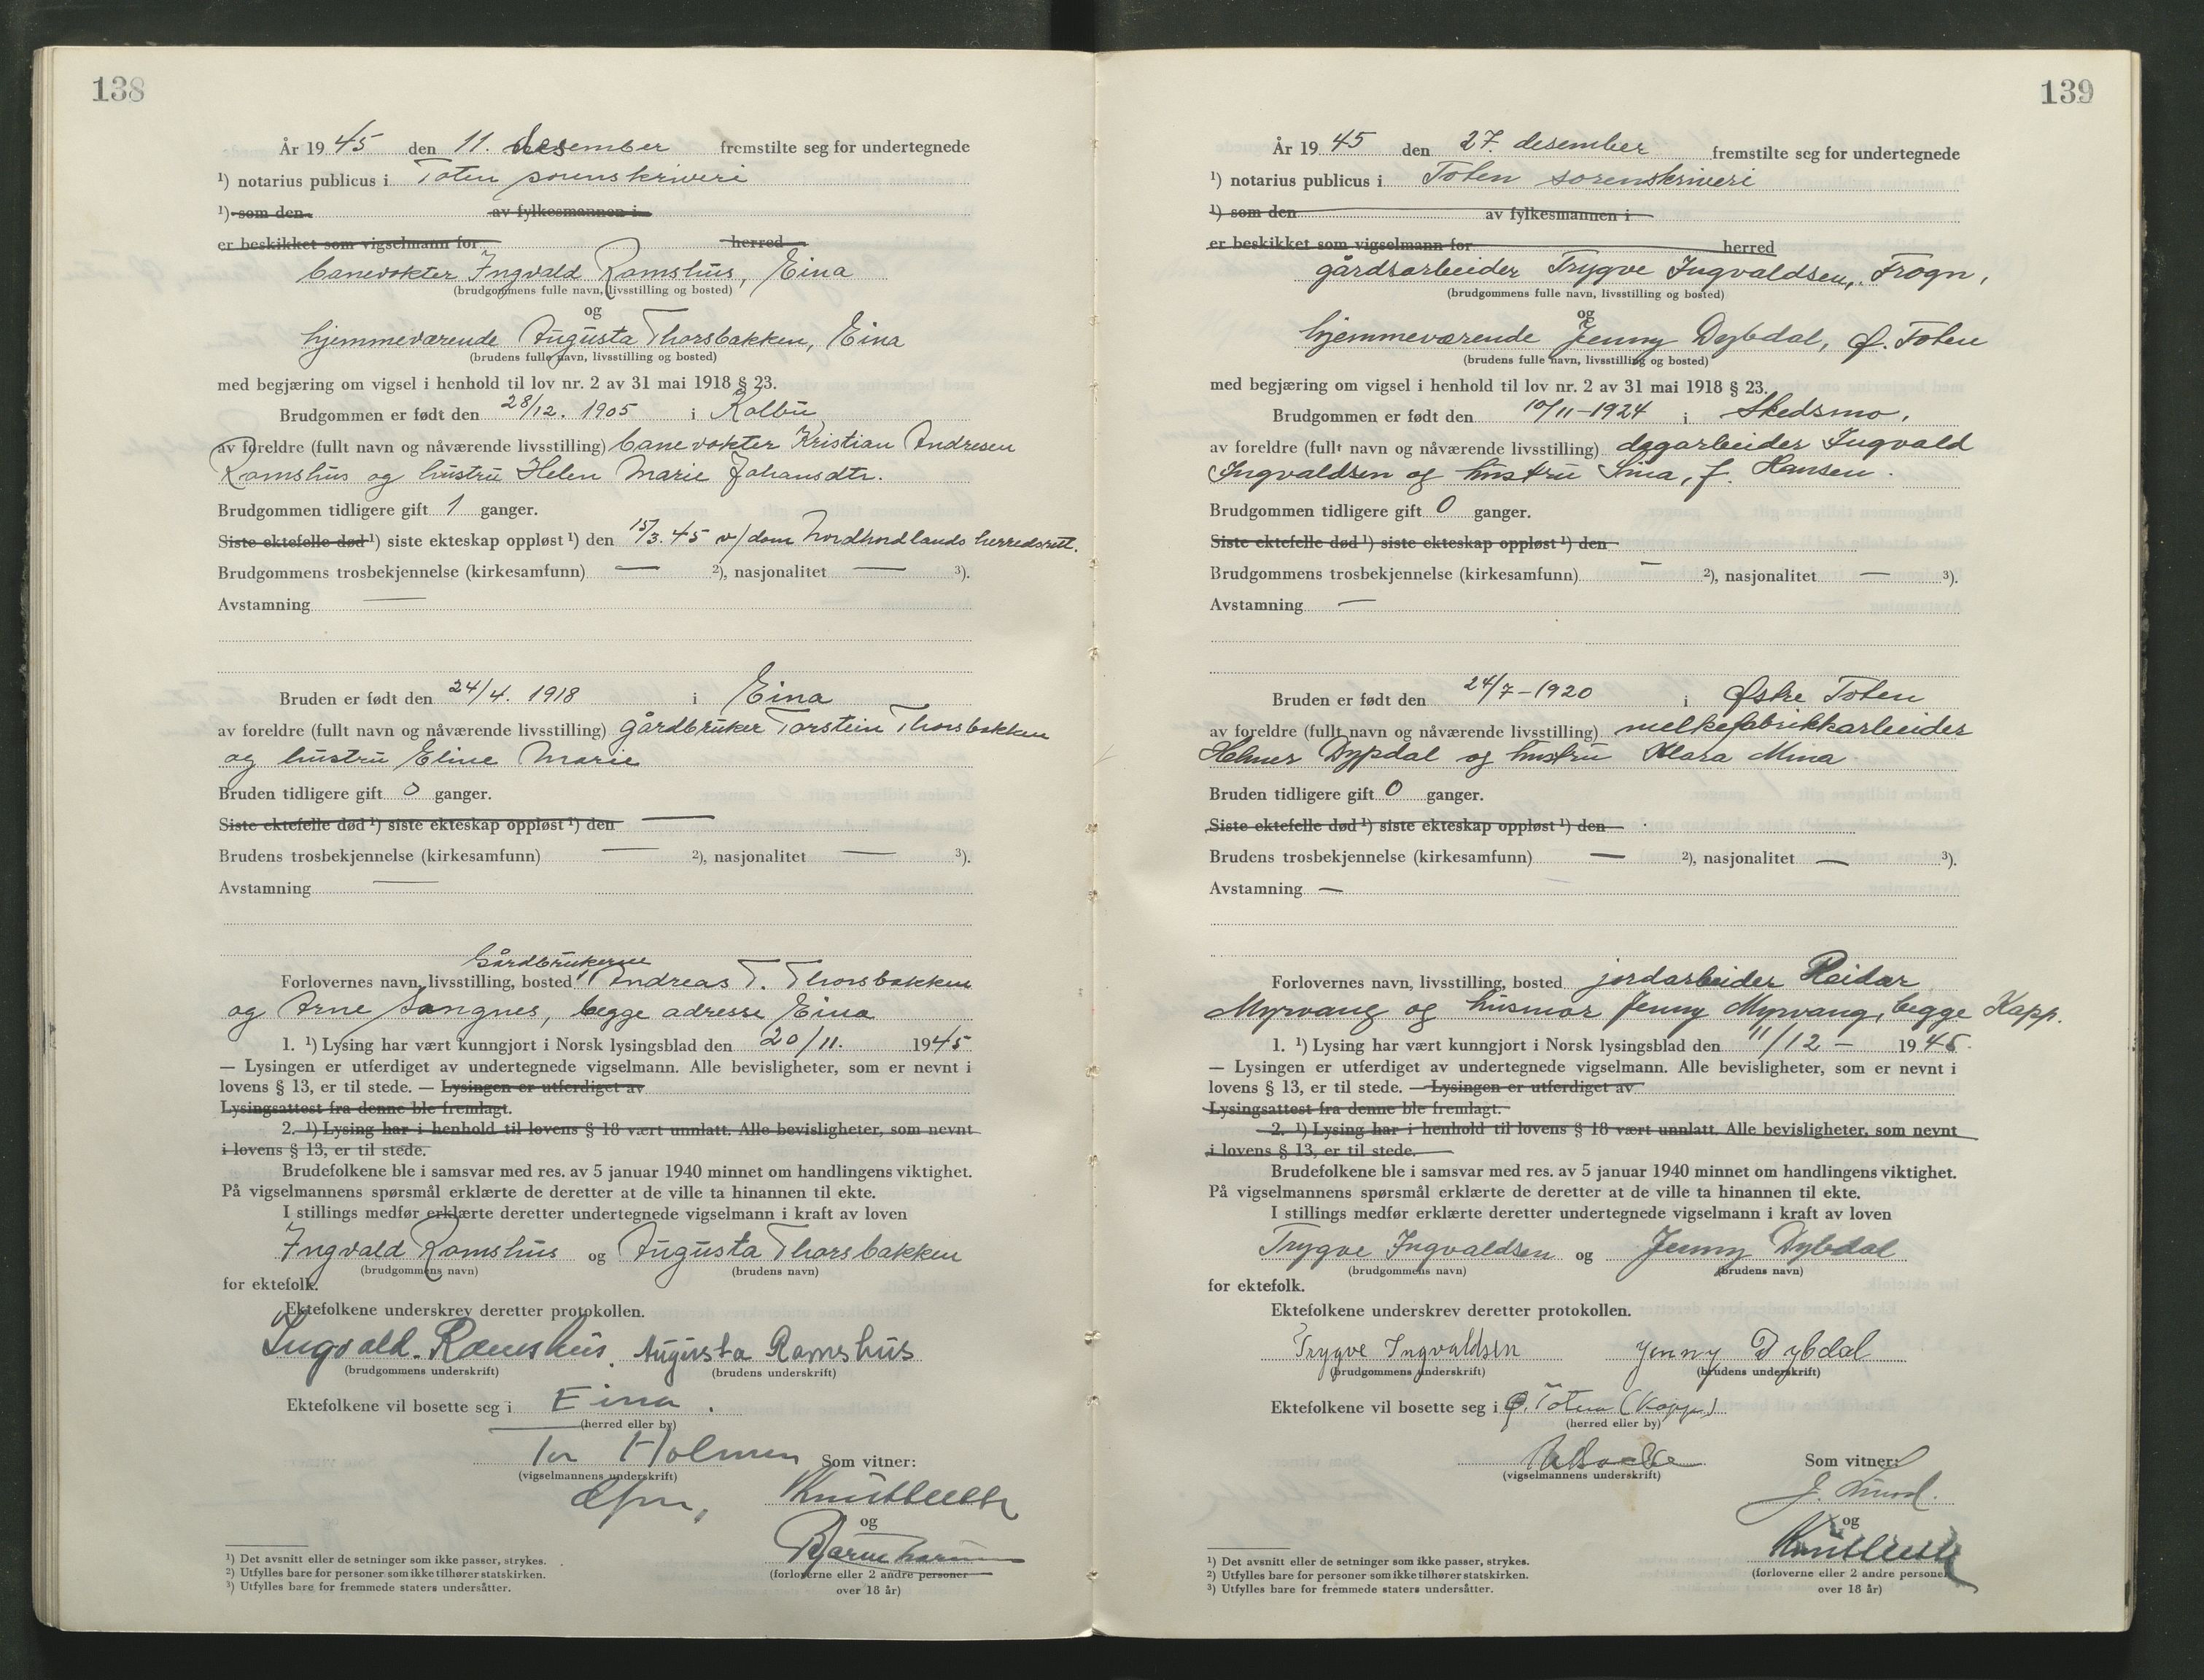 138
År 1945 den 11. desember fremstilte seg for undertegnede
¹) notarius publicus i Toten sorenskriveri
¹) som den av fylkesmannen i
er beskikket som vigselmann for herred
banevokter Ingvald Ramshus, Eina
(brudgommens fulle navn, livsstilling og bosted)
og
hjemmeværende Augusta Thorsbakken, Eina
(brudens fulle navn, livsstilling og bosted)
med begjæring om vigsel i henhold til lov nr. 2 av 31 mai 1918 § 23.
Brudgommen er født den 28/12. 1905 i Kolbu
av foreldre (fullt navn og nåværende livsstilling) banevokter Kristian Andresen
Ramshus og hustru Helen Marie Johansdtr.
Brudgommen tidligere gift 1 ganger.
Siste ektefelle død ¹) siste ekteskap oppløst ¹) den 15/3. 45 v/dom Nordhordlands herredsrett.
Brudgommens trosbekjennelse (kirkesamfunn) — ²), nasjonalitet — ³).
Avstamning —
Bruden er født den 24/4. 1918 i Eina
av foreldre (fullt navn og nåværende livsstilling) gårdbruker Torstein Thorsbakken
og hustru Eline Marie
Bruden tidligere gift 0 ganger.
Siste ektefelle død ¹) siste ekteskap oppløst ¹) den —
Brudens trosbekjennelse (kirkesamfunn) — ²), nasjonalitet — ³).
Avstamning —
Gårdbrukerne
Forlovernes navn, livsstilling, bosted Andreas T. Thorsbakken
og Arne Sangnes, begge adresse Eina
1. ¹) Lysing har vært kunngjort i Norsk lysingsblad den 20/11. 1945
— Lysingen er utferdiget av undertegnede vigselmann. Alle bevisligheter, som er nevnt i
lovens § 13, er til stede. — Lysingen er utferdiget av
Lysingsattest fra denne ble fremlagt.
2. ¹) Lysing har i henhold til lovens § 18 vært unnlatt. Alle bevisligheter, som nevnt
i lovens § 13, er til stede.
Brudefolkene ble i samsvar med res. av 5 januar 1940 minnet om handlingens viktighet.
På vigselmannens spørsmål erklærte de deretter at de ville ta hinannen til ekte.
I stillings medfør erklærte deretter undertegnede vigselmann i kraft av loven
Ingvald Ramshus og Augusta Thorsbakken
(brudgommens navn) (brudens navn)
for ektefolk.
Ektefolkene underskrev deretter protokollen.
Ingvald. Ramshus. Augusta Ramshus
(brudgommens underskrift) (brudens underskrift)
Ektefolkene vil bosette seg i Eina.
(herred eller by)
Tor Holmen Som vitner:
(vigselmannens underskrift)
og
(forloverne eller 2 andre personer
over 18 år)
¹) Det avsnitt eller de setninger som ikke passer, strykes.
²) Utfylles bare for personer som ikke tilhører statskirken.
³) Utfylles bare for fremmede staters undersåtter.
139
År 1945 den 27. desember fremstilte seg for undertegnede
¹) notarius publicus i Toten sorenskriveri
¹) som den av fylkesmannen i
er beskikket som vigselmann for herred
gårdsarbeider Trygve Ingvaldsen, Frogn,
(brudgommens fulle navn, livsstilling og bosted)
og
hjemmeværende Jenny Dybdal, Ø. Toten
(brudens fulle navn, livsstilling og bosted)
med begjæring om vigsel i henhold til lov nr. 2 av 31 mai 1918 § 23.
Brudgommen er født den 10/11-1924 i Skedsmo,
av foreldre (fullt navn og nåværende livsstilling) dagarbeider Ingvald
Ingvaldsen og hustru Sina, f. Hansen.
Brudgommen tidligere gift 0 ganger.
Siste ektefelle død ¹) siste ekteskap oppløst ¹) den
Brudgommens trosbekjennelse (kirkesamfunn) — ²), nasjonalitet — ³).
Avstamning —
Bruden er født den 24/7-1920 i Østre Toten
av foreldre (fullt navn og nåværende livsstilling) melkefabrikkarbeider
Helmer Dypdal og hustru Klara Mina
Bruden tidligere gift 0 ganger.
Siste ektefelle død ¹) siste ekteskap oppløst ¹) den
Brudens trosbekjennelse (kirkesamfunn) — ²), nasjonalitet — ³).
Avstamning —
Forlovernes navn, livsstilling, bosted jordarbeider Reidar
Myrvang og husmor Jenny Myrvang, begge Kapp.
1. ¹) Lysing har vært kunngjort i Norsk lysingsblad den 11/12 — 1945.
— Lysingen er utferdiget av undertegnede vigselmann. Alle bevisligheter, som er nevnt i
lovens § 13, er til stede. — Lysingen er utferdiget av
Lysingsattest fra denne ble fremlagt.
2. ¹) Lysing har i henhold til lovens § 18 vært unnlatt. Alle bevisligheter, som nevnt
i lovens § 13, er til stede.
Brudefolkene ble i samsvar med res. av 5 januar 1940 minnet om handlingens viktighet.
På vigselmannens spørsmål erklærte de deretter at de ville ta hinannen til ekte.
I stillings medfør erklærte deretter undertegnede vigselmann i kraft av loven
Trygve Ingvaldsen og Jenny Dybdal
(brudgommens navn) (brudens navn)
for ektefolk.
Ektefolkene underskrev deretter protokollen.
Trygve Ingvaldsen Jenny Dybdal
(brudgommens underskrift) (brudens underskrift)
Ektefolkene vil bosette seg i Ø. Toten (Kapp)
(herred eller by)
Som vitner:
(vigselmannens underskrift)
og
(forloverne eller 2 andre personer
over 18 år)
¹) Det avsnitt eller de setninger som ikke passer, strykes.
²) Utfylles bare for personer som ikke tilhører statskirken.
³) Utfylles bare for fremmede staters undersåtter.